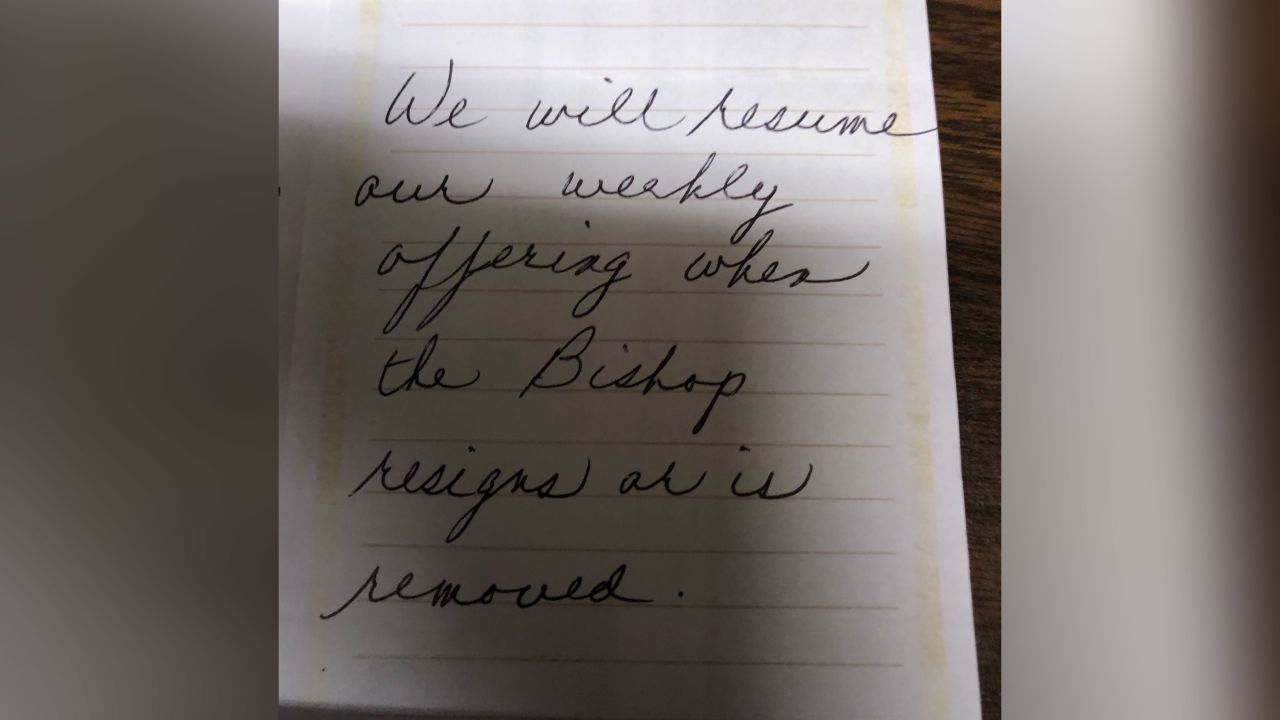 We will resume
our weekly
offering when
the Bishop
resigns or is
removed.